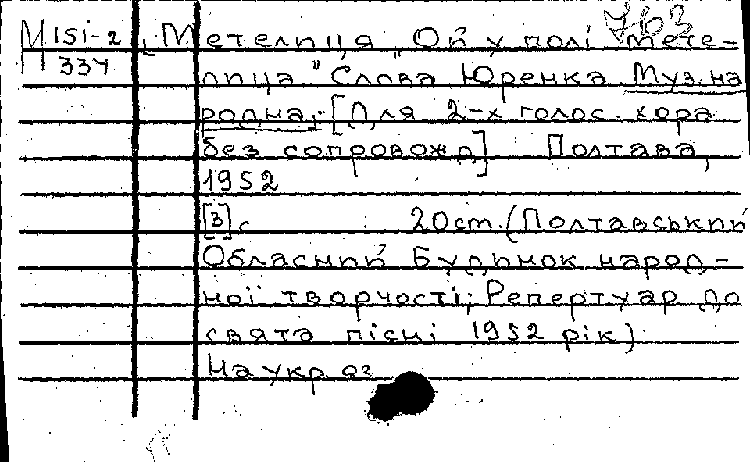 703
М 151-2
334
Метелиця „Ой у полі мете-
лица" Слова Юренка Муз. на
родна,-[Для 2-х голос. хора
без сопровожд] Полтава,
1952
[3] с. 20см. (Полтавський
Обласний Будинок народ-
ної творчості; Репертуар до
свята пісні 1952 рік)
На укр яз